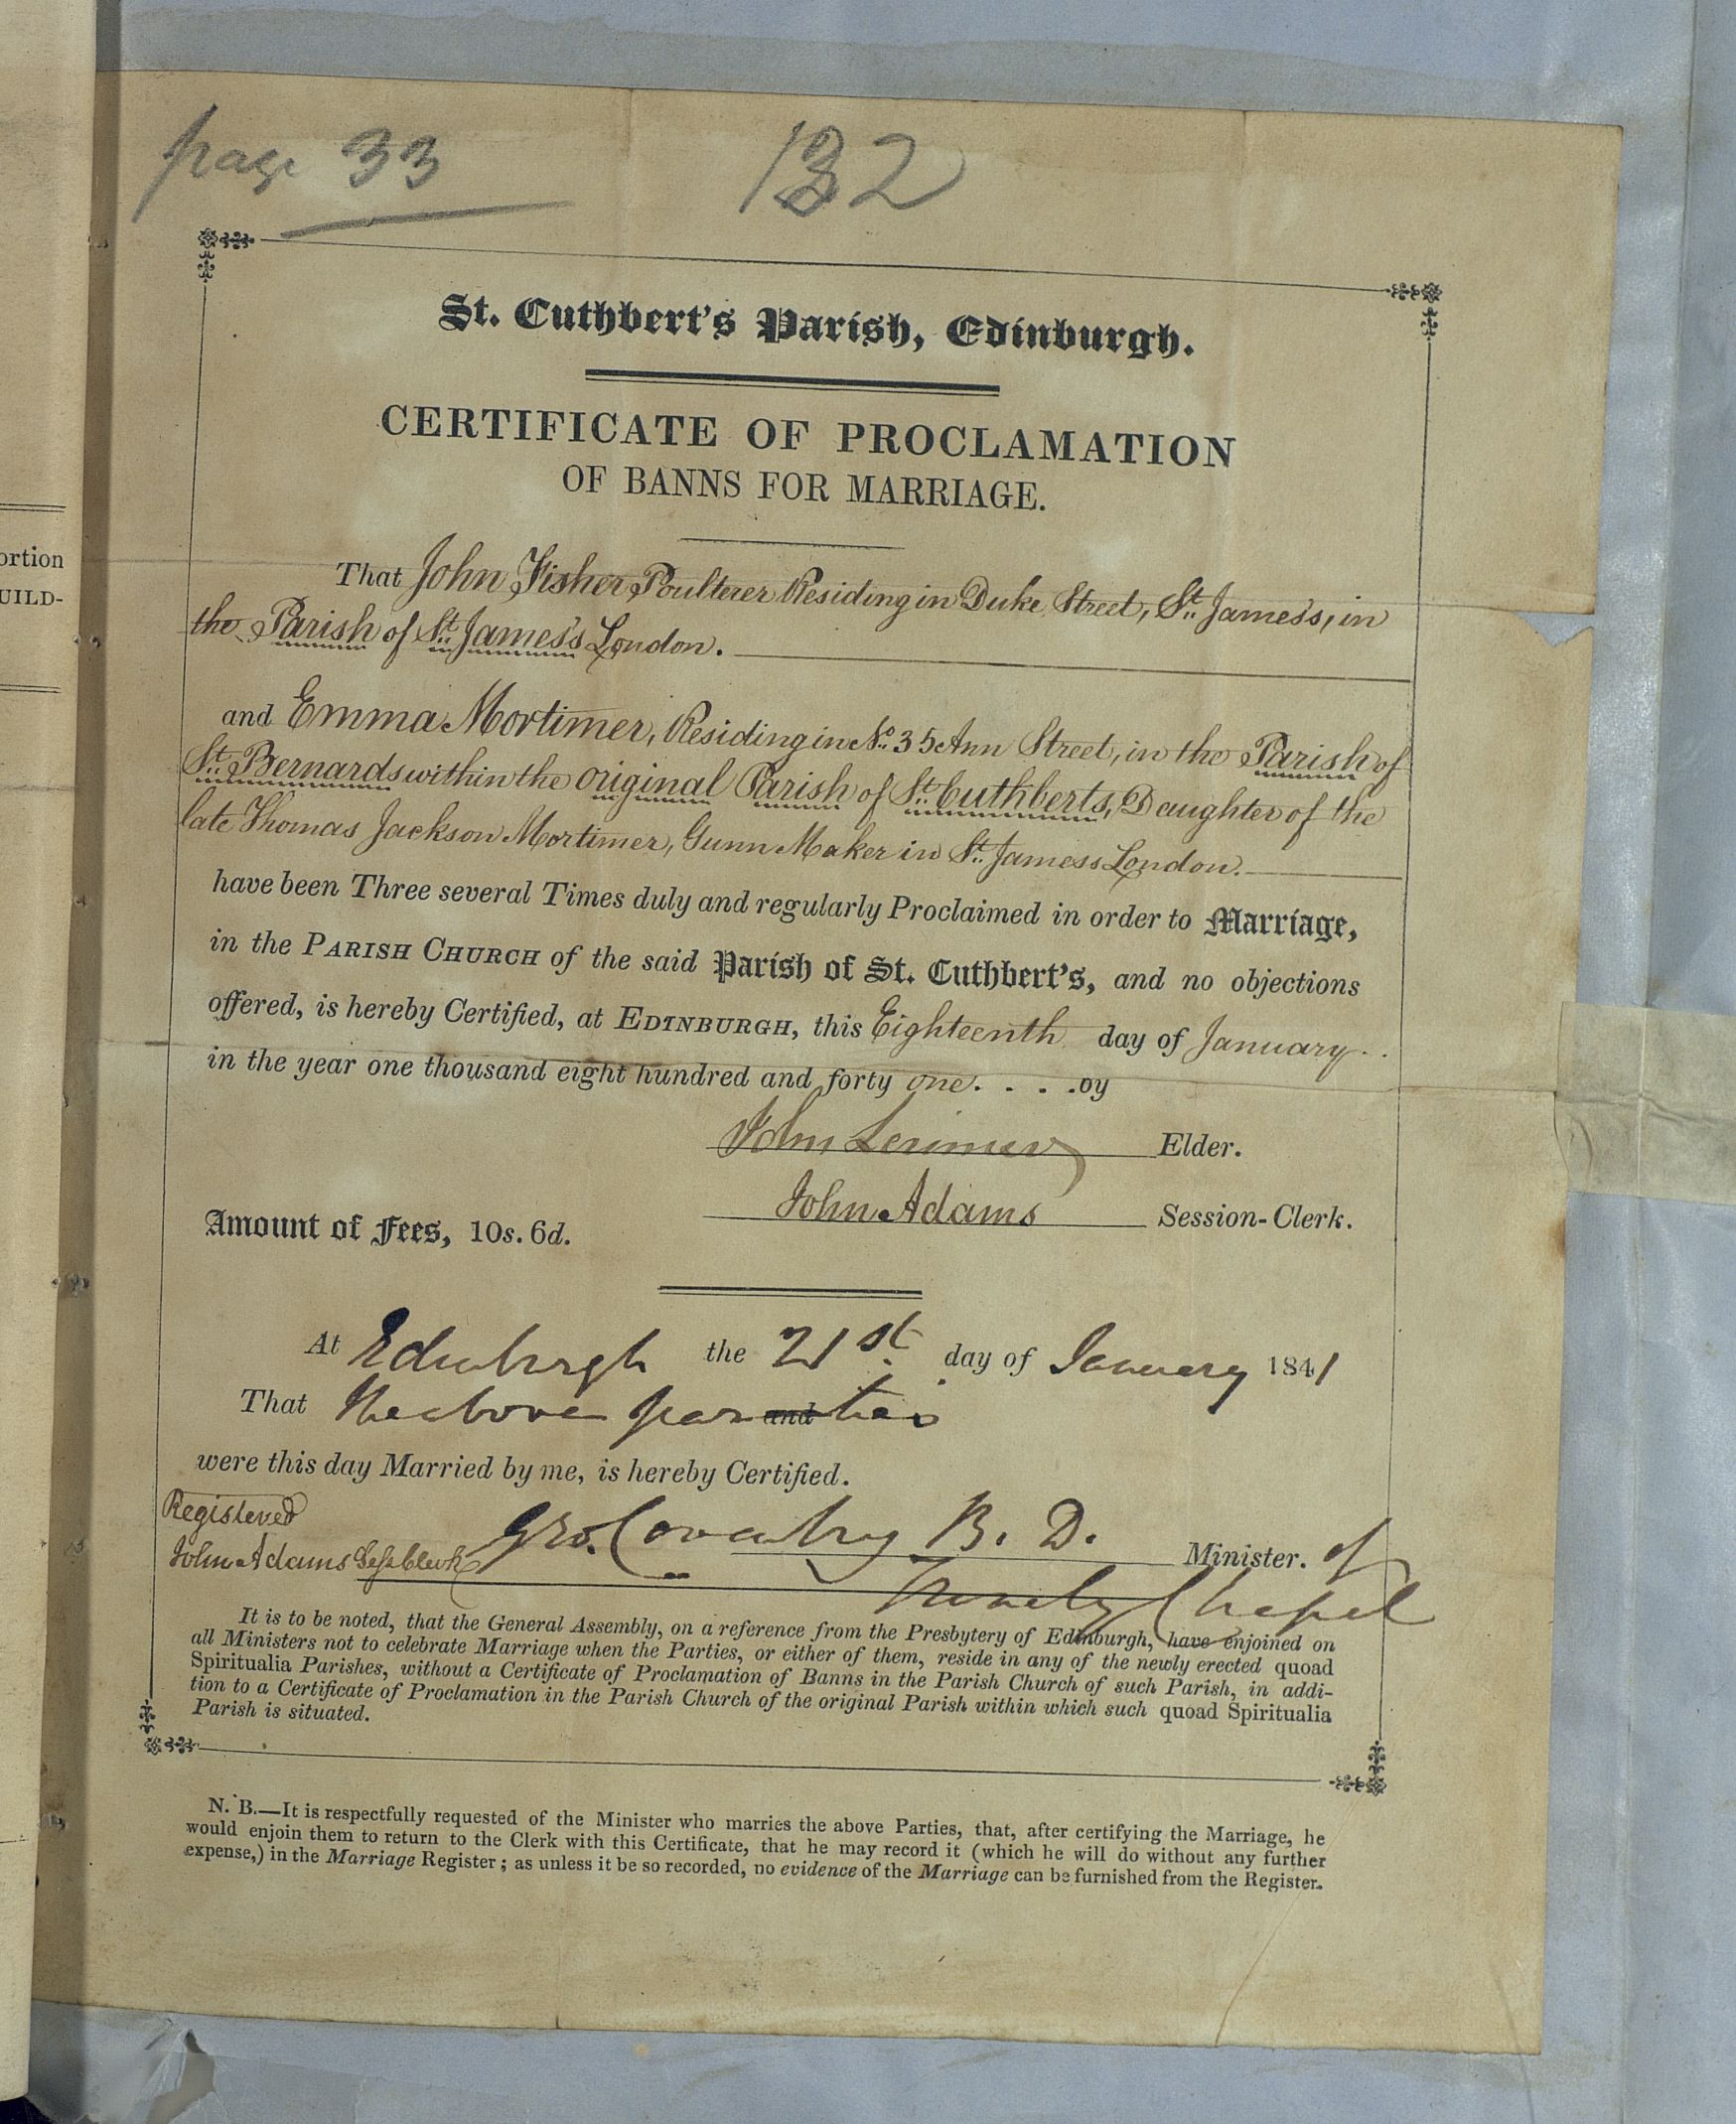 page 33
132
St. Cuthbert's Parish, Edinburgh.
CERTIFICATE OF PROCLAMATION
OF BANNS FOR MARRIAGE.
That John Fisher Poulterer Residing in Duke Street, St. James's, in
the Parish of St. James's London.
and Emma Mortimer, Residing in No. 35 Ann Street, in the Parish of
St. Bernards within the original Parish of St. Cuthberts, Daughter of the
late Thomas Jackson Mortimer, Gunn Maker in St. Jamess London.
have been Three several Times duly and regularly Proclaimed in order to Marriage,
in the PARISH CHURCH of the said Parish of St. Cuthbert's, and no objections
offered, is hereby Certified, at EDINBURGH, this Eighteenth day of January
in the year one thousand eight hundred and forty one. . . . by
John Lorimer Elder.
John Adams Session-Clerk.
Amount of Fees, 10s. 6d.
At Edinburgh the 21st day of January 1841
That the above par and ties
were this day Married by me, is hereby Certified.
Registered
John Adams Sess Clerk Geo. Coventry B. D. Minister. of
Trinity Chapel
It is to be noted, that the General Assembly, on a reference from the Presbytery of Edinburgh, have enjoined on
all Ministers not to celebrate Marriage when the Parties, or either of them, reside in any of the newly erected quoad
Spiritualia Parishes, without a Certificate of Proclamation of Banns in the Parish Church of such Parish, in addi-
tion to a Certificate of Proclamation in the Parish Church of the original Parish within which such quoad Spiritualia
Parish is situated.
N. B.—It is respectfully requested of the Minister who marries the above Parties, that, after certifying the Marriage, he
would enjoin them to return to the Clerk with this Certificate, that he may record it (which he will do without any further
expense,) in the Marriage Register; as unless it be so recorded, no evidence of the Marriage can be furnished from the Register.
ortion
UILD-